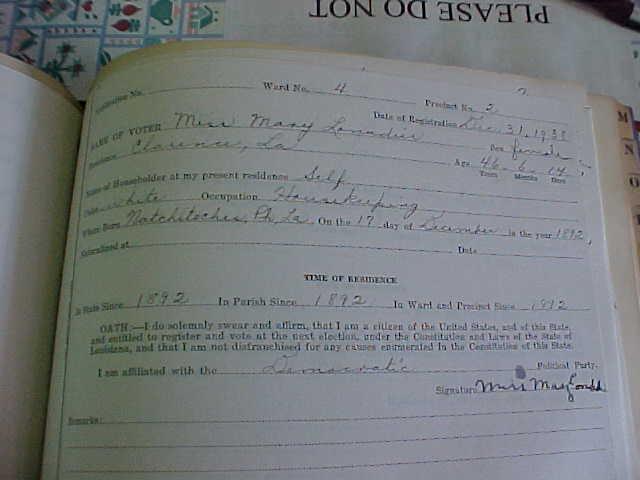 PLEASE DO NOT
Ward No. 4 Precinct No. 2
Date of Registration Dec. 31, 1938
NAME OF VOTER Miss Mary
Residence Clarence, La Sex female
Age 46 6 14
Years Months Days
Name of Householder at my present residence Self
Color white Occupation Housekeeping
Where Born Natchitoches, Ph, La. On the 17 day of December in the year 1892,
Naturalized at Date
TIME OF RESIDENCE
In State Since 1892 In Parish Since 1892 In Ward and Precinct Since 1892
OATH:—I do solemnly swear and affirm, that I am a citizen of the United States, and of this State,
and entitled to register and vote at the next election, under the Constitution and Laws of the State of
Louisiana, and that I am not disfranchised for any causes enumerated in the Constitution of this State.
I am affiliated with the Democratic Political Party.
Signature Miss May
Remarks:
M
N
O